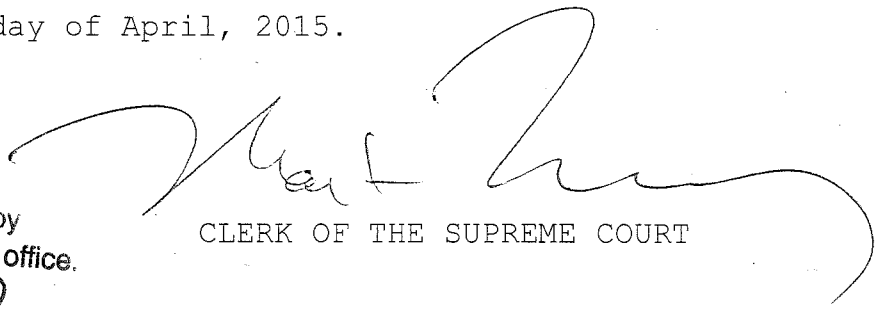 day of April, 2015.
by
CLERK OF THE SUPREME COURT
office.